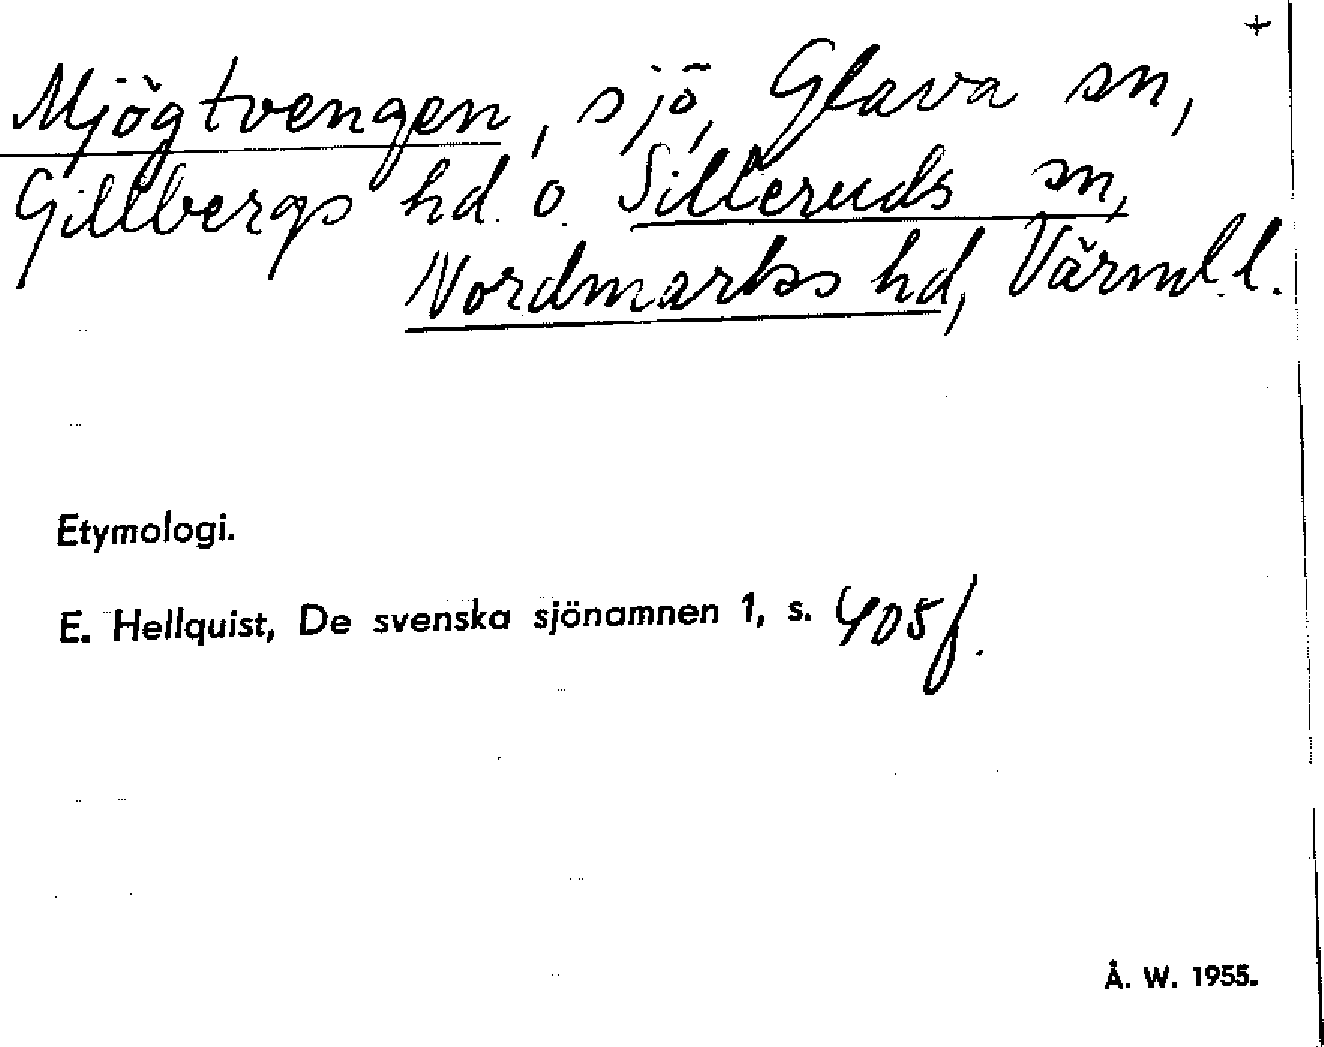 +
Mjögtvengen, sjö, Glava sn,
Gillbergs hd. o. Silleruds sn,
Nordmarks hd, Värml. l.
Etymologi.
E. Hellquist, De svenska sjönamnen 1, s. 405 f.
Å. W. 1955.